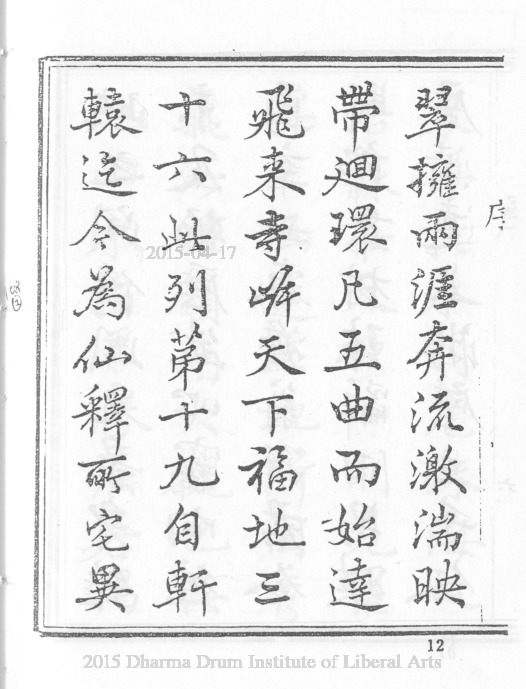 序
翠擁兩涯奔流激湍映
帶迴環凡五曲而始達
飛来寺嶭天下福地三
十六此列第十九自軒
轅迄今為仙釋所宅異
12
2015-04-17
2015 Dharma Drum Institute of Liberal Arts